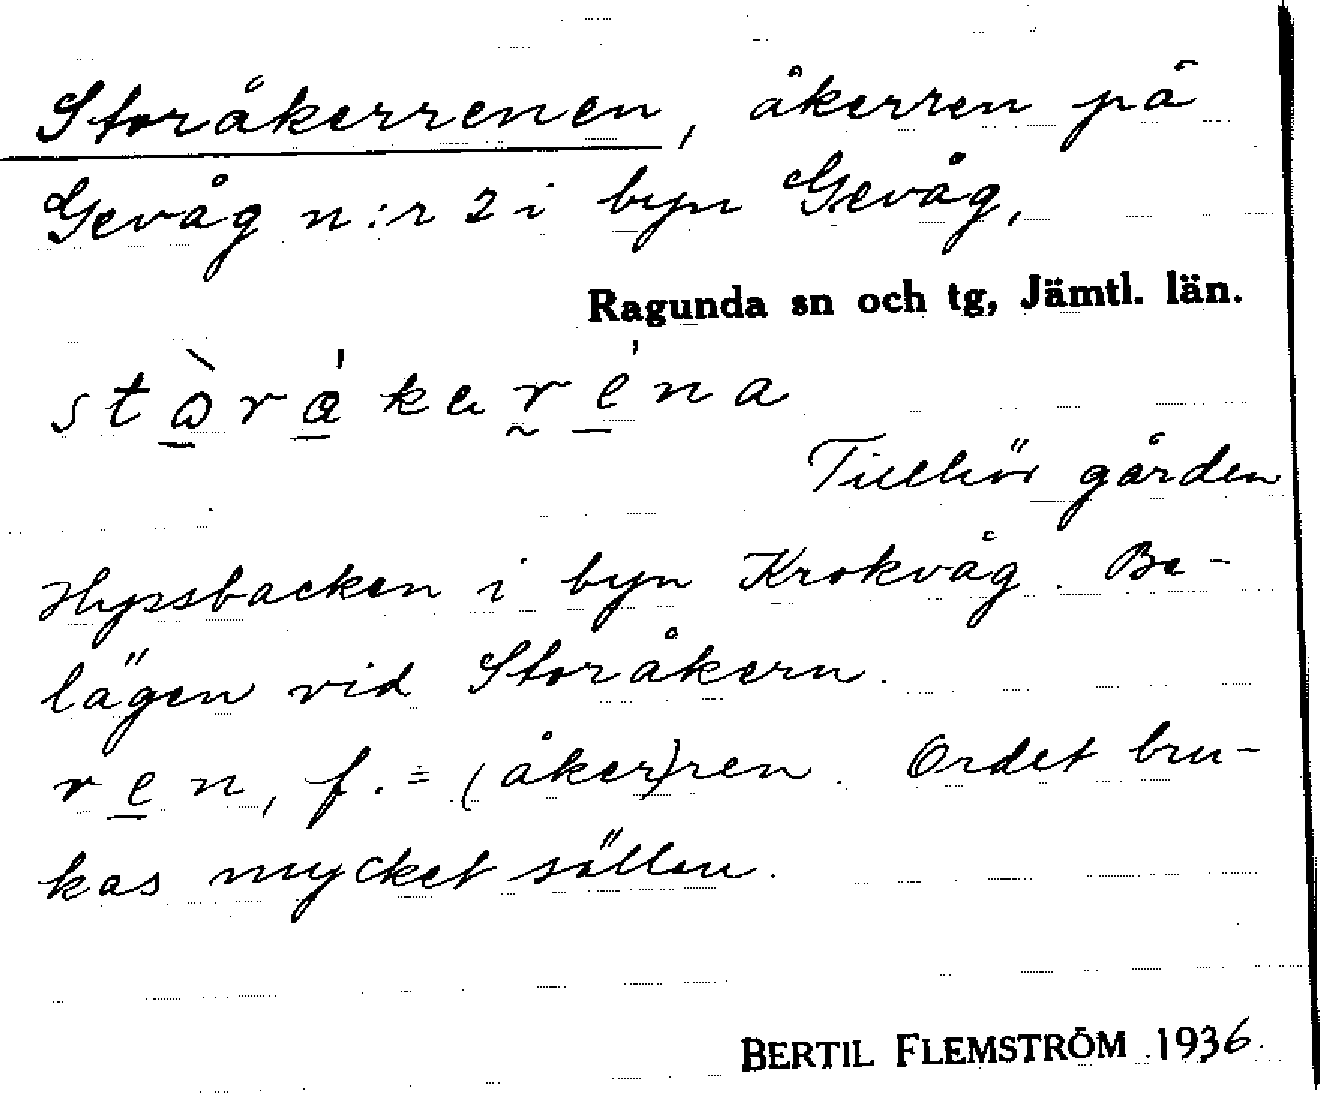 Storåkerrenen, åkerren på
Gevåg n:r 2 i byn Gevåg,
Ragunda sn och tg, Jämtl. län.
Tillhör gården
i byn Krokvåg. Be-
lägen vid Storåkern.
ren, f. = (åker)ren. Ordet bru-
kas mycket sällan.
BERTIL FLEMSTRÖM 1936.